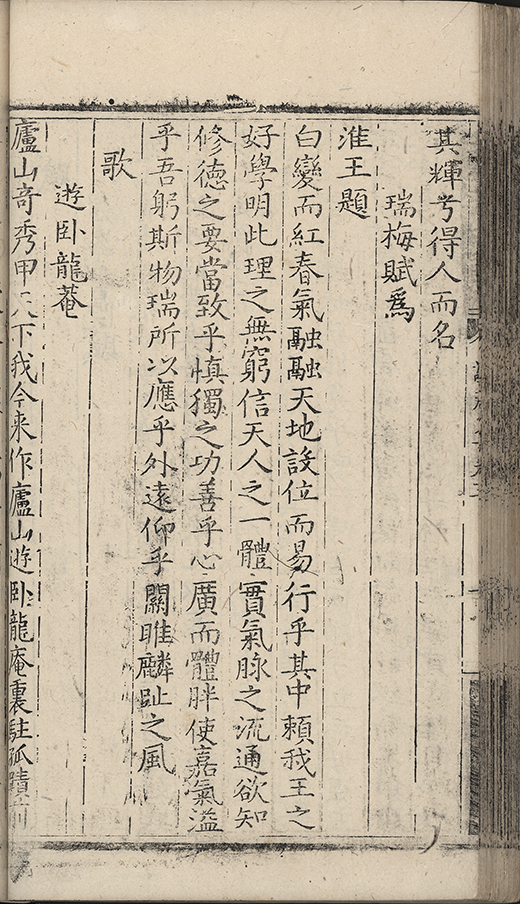 其輝兮得人而名
瑞梅賦爲
淮王題
白變而紅春氣融融天地設位而易行乎其中賴我王之
好學明此理之無窮信天人之一體實氣脉之流通欲知
修德之要當致乎慎獨之功善乎心廣而體胖使嘉氣溢
乎吾躬斯物瑞所以應乎外遠仰乎關雎麟趾之風
歌
遊卧龍菴
廬山奇秀甲天下我今来作廬山遊卧龍庵裏駐孤蹟前